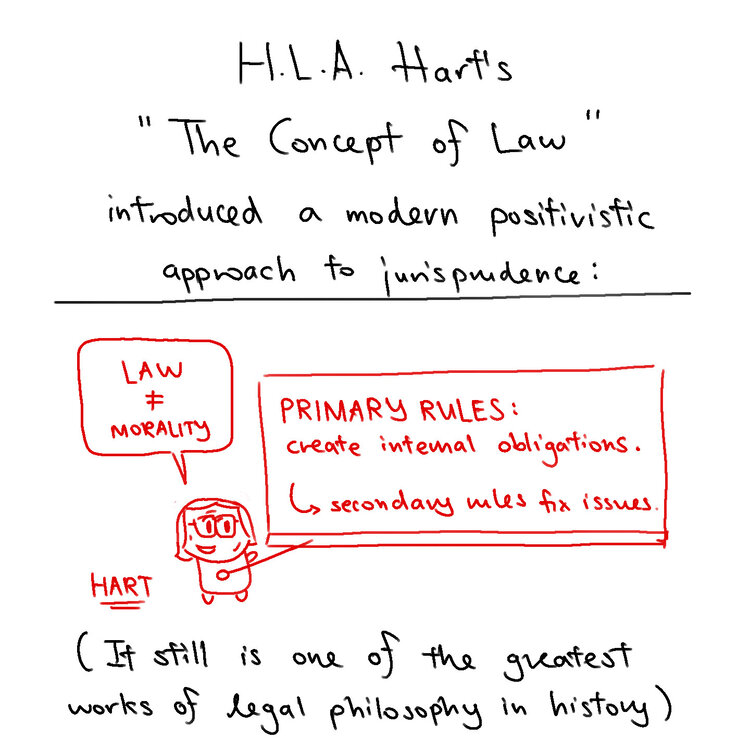 H.L.A. Hart's
"The Concept of Law"
introduced a modern positivistic
approach to jurisprudence:
LAW
≠
MORALITY
PRIMARY RULES:
create internal obligations.
↳ secondary rules fix issues.
HART
(It still is one of the greatest
works of legal philosophy in history)